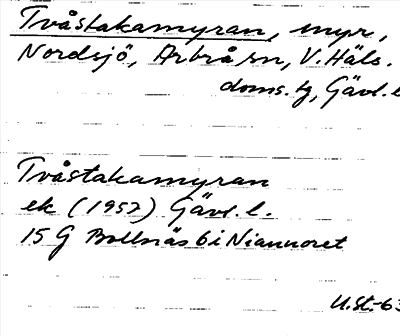 Tvåstakamyran, myr,
Nordsjö, Arbrå sn, V. Häls.
doms. tg, Gävl. l
Tvåstakamyran
ek (1957) Gävl. l.
15 G Bollnäs 6 i
U.St.-63